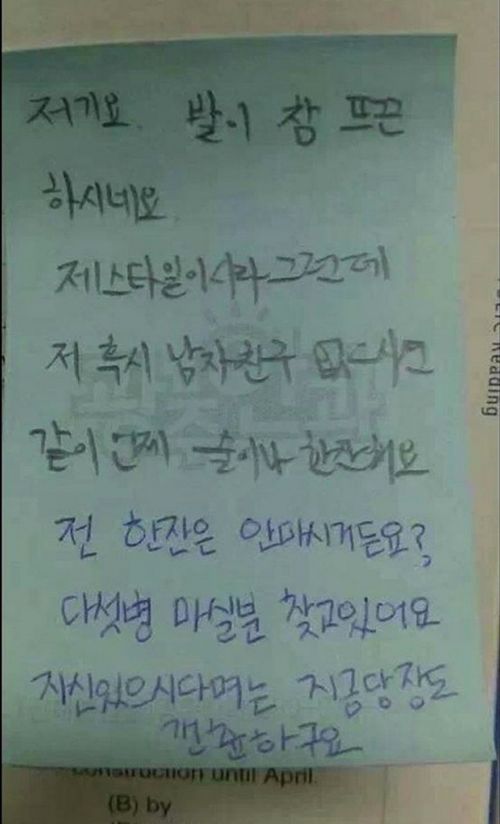 저기요. 발이 참 뜨끈
하시네요
제스타일이시라 그런데
저 혹시 남자친구 없으시면
같이 언제 술이나 한잔해요
전 한잔은 안마시거든요?
다섯병 마실분 찾고있어요
자신있으시다며는 지금당장도
갠찮하구요
construction until April.
(B) by
Reading